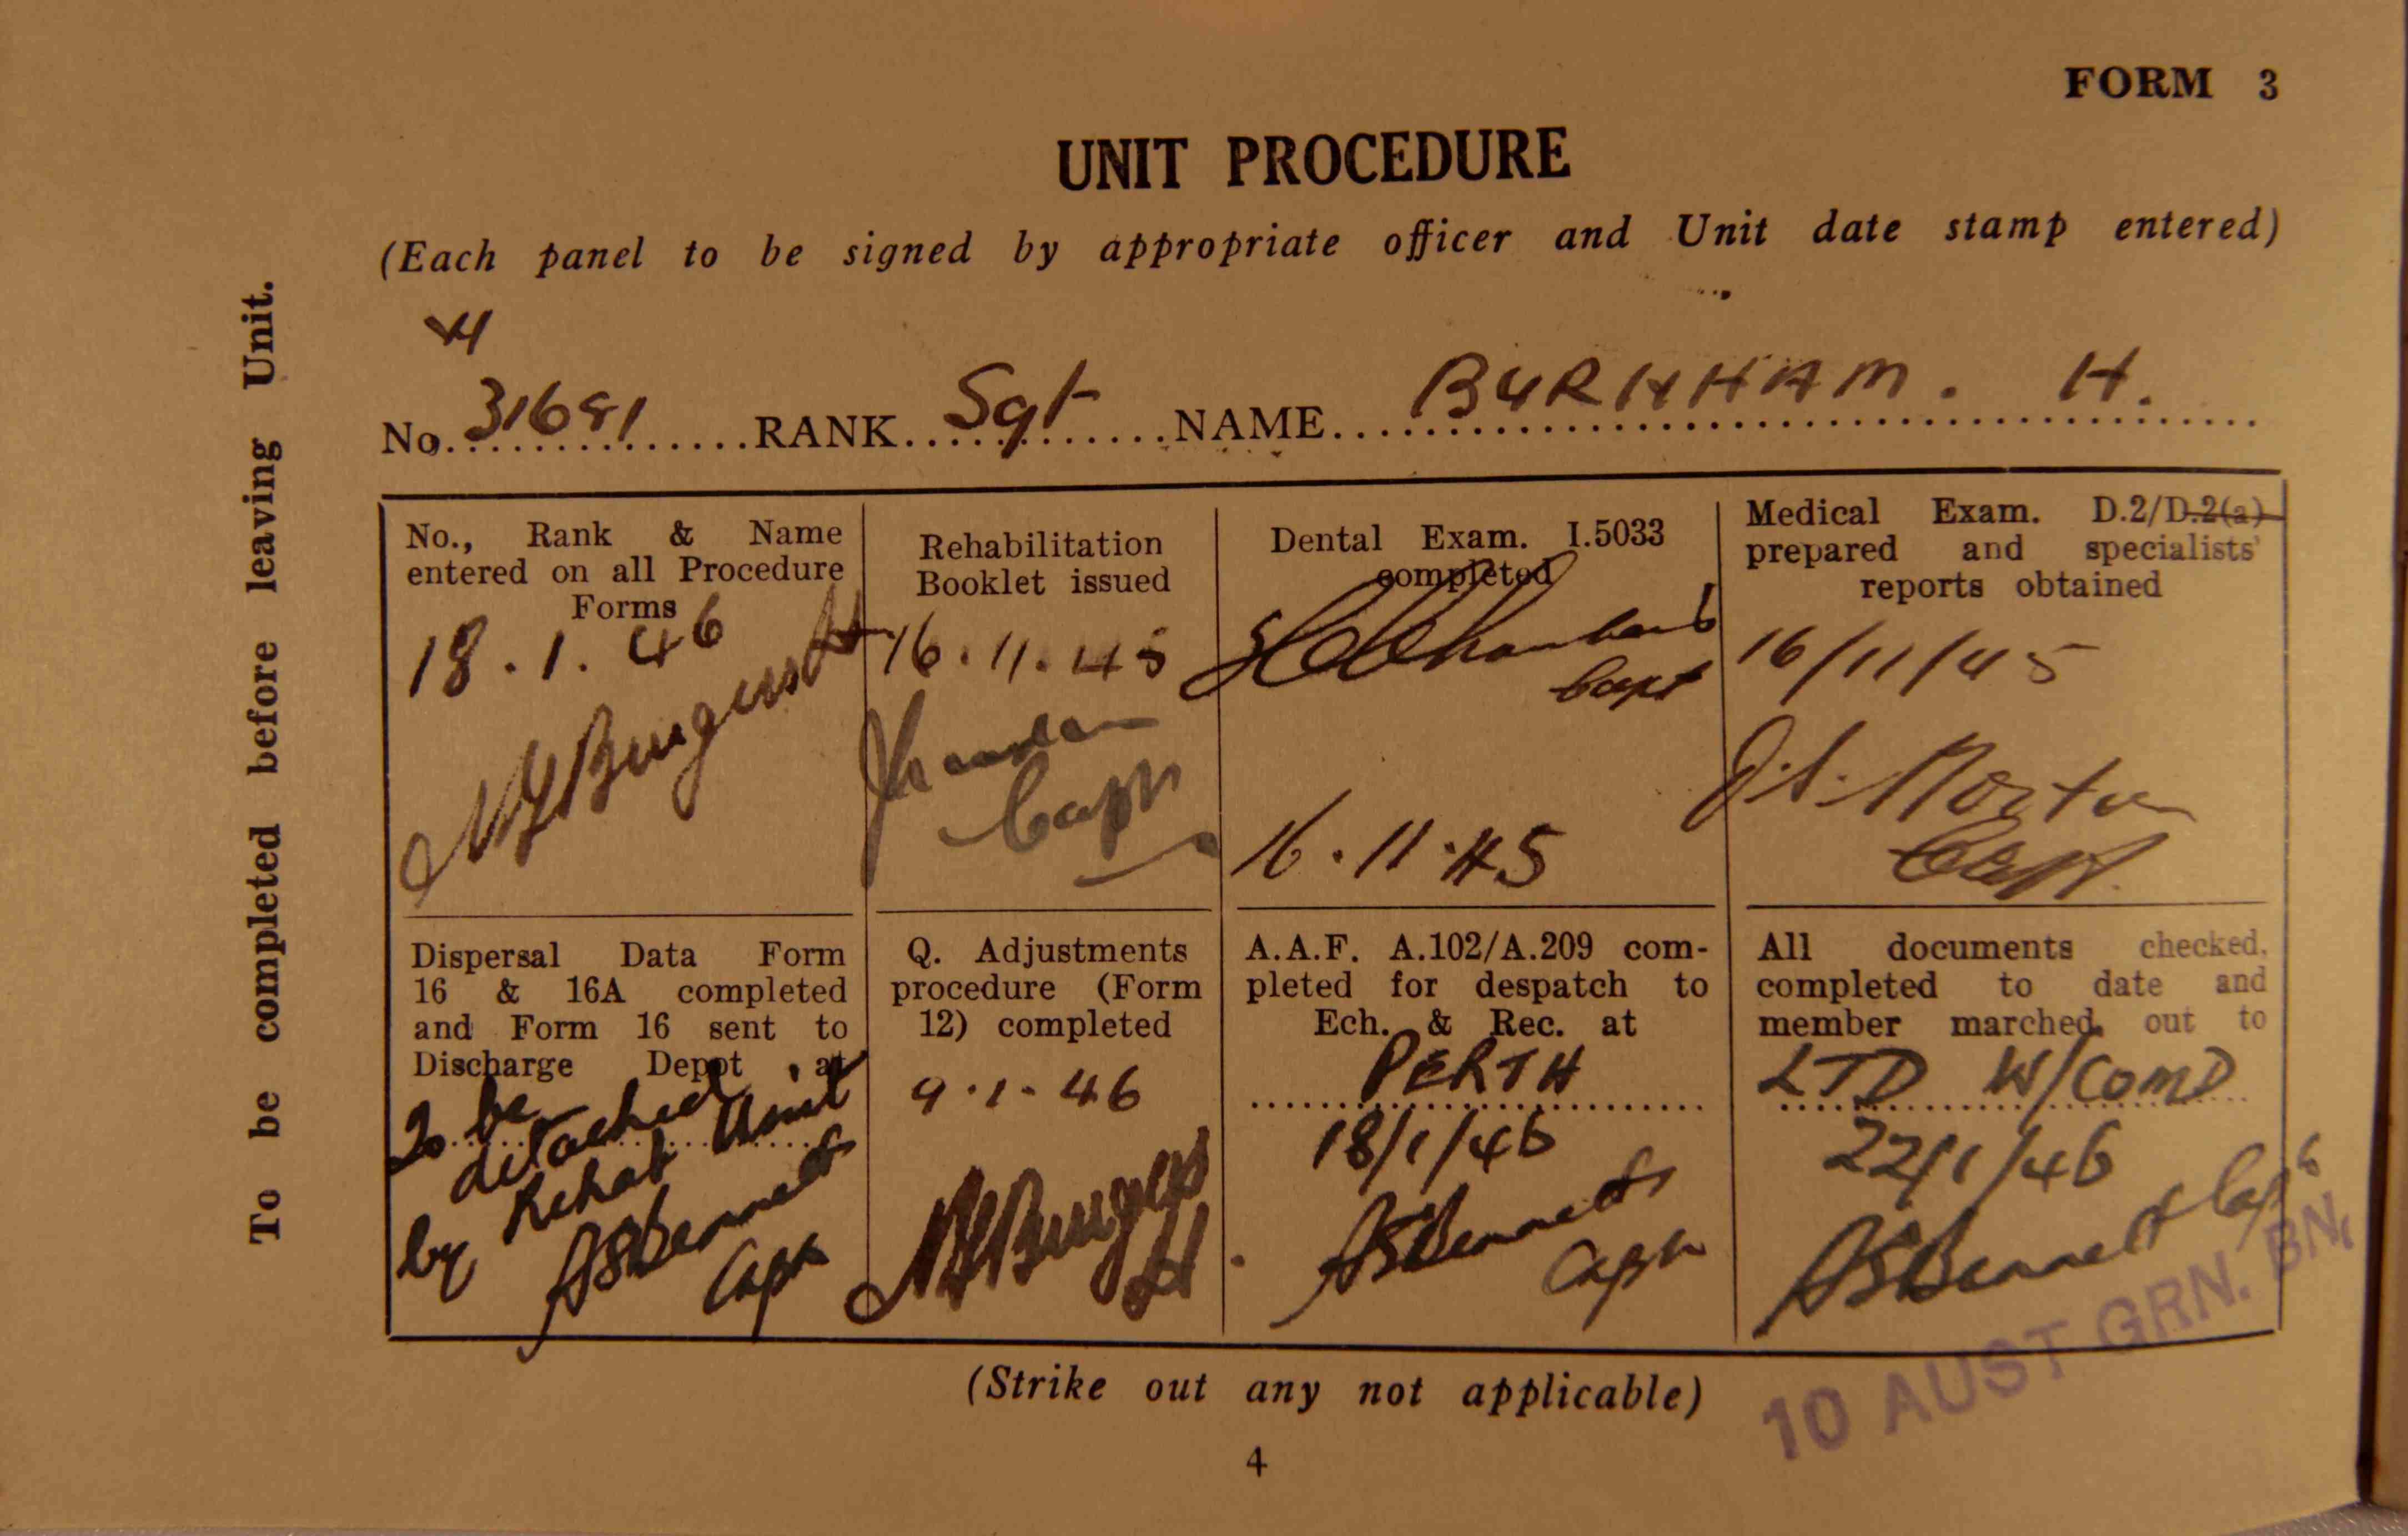 FORM 3
UNIT PROCEDURE
(Each panel to be signed by appropriate officer and Unit date stamp entered)
To be completed before leaving Unit.
No. 31681 RANK Sgt NAME BURNHAM. H.
No., Rank & Name
entered on all Procedure
Forms
18.1.46
Rehabilitation
Booklet issued
16.11.45
Capt
Dental Exam. I.5033
completed
Capt
16.11.45
Medical Exam. D.2/D.2(a)
prepared and specialists'
reports obtained
16/11/45
Capt.
Dispersal Data Form
16 & 16A completed
and Form 16 sent to
Discharge Depot at
To be
detached
by Rehab Unit
ASBennett
Capt
Q. Adjustments
procedure (Form
12) completed
9.1.46
A.A.F. A.102/A.209 com-
pleted for despatch to
Ech. & Rec. at
PERTH
18/1/46
ASBennett
Capt
All documents checked,
completed to date and
member marched out to
LTD W/COMD
22/1/46
ASBennett Capt
10 AUST GRN. BN.
(Strike out any not applicable)
4